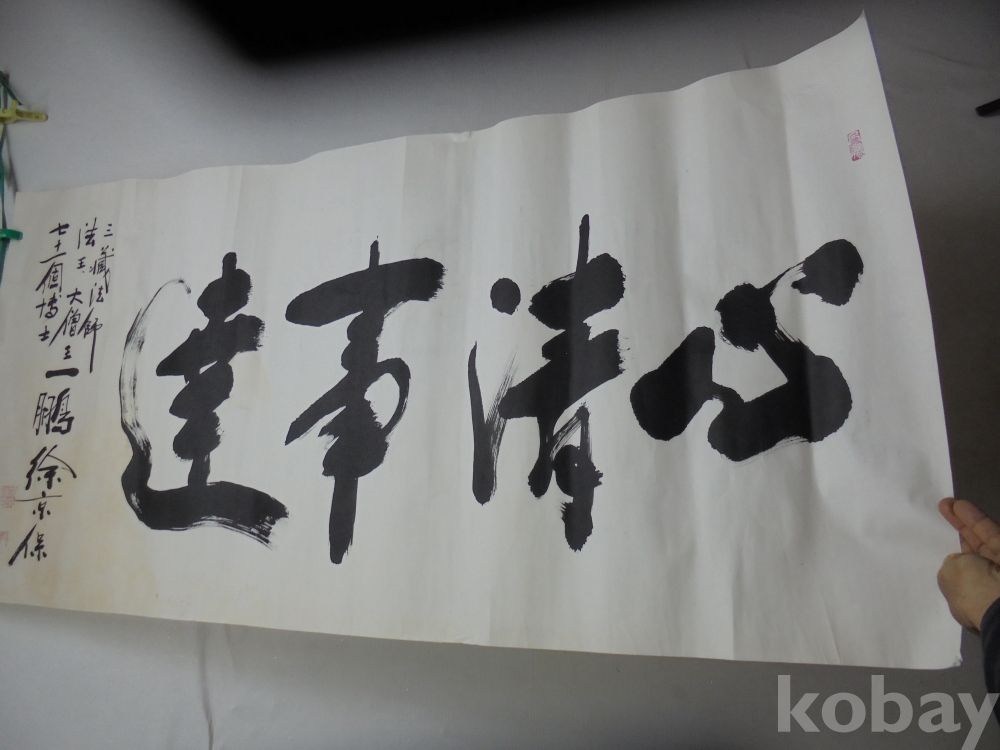 心清事達
三藏法師
法王 大僧正
七十二個博士
一鵬 徐京保
kobay